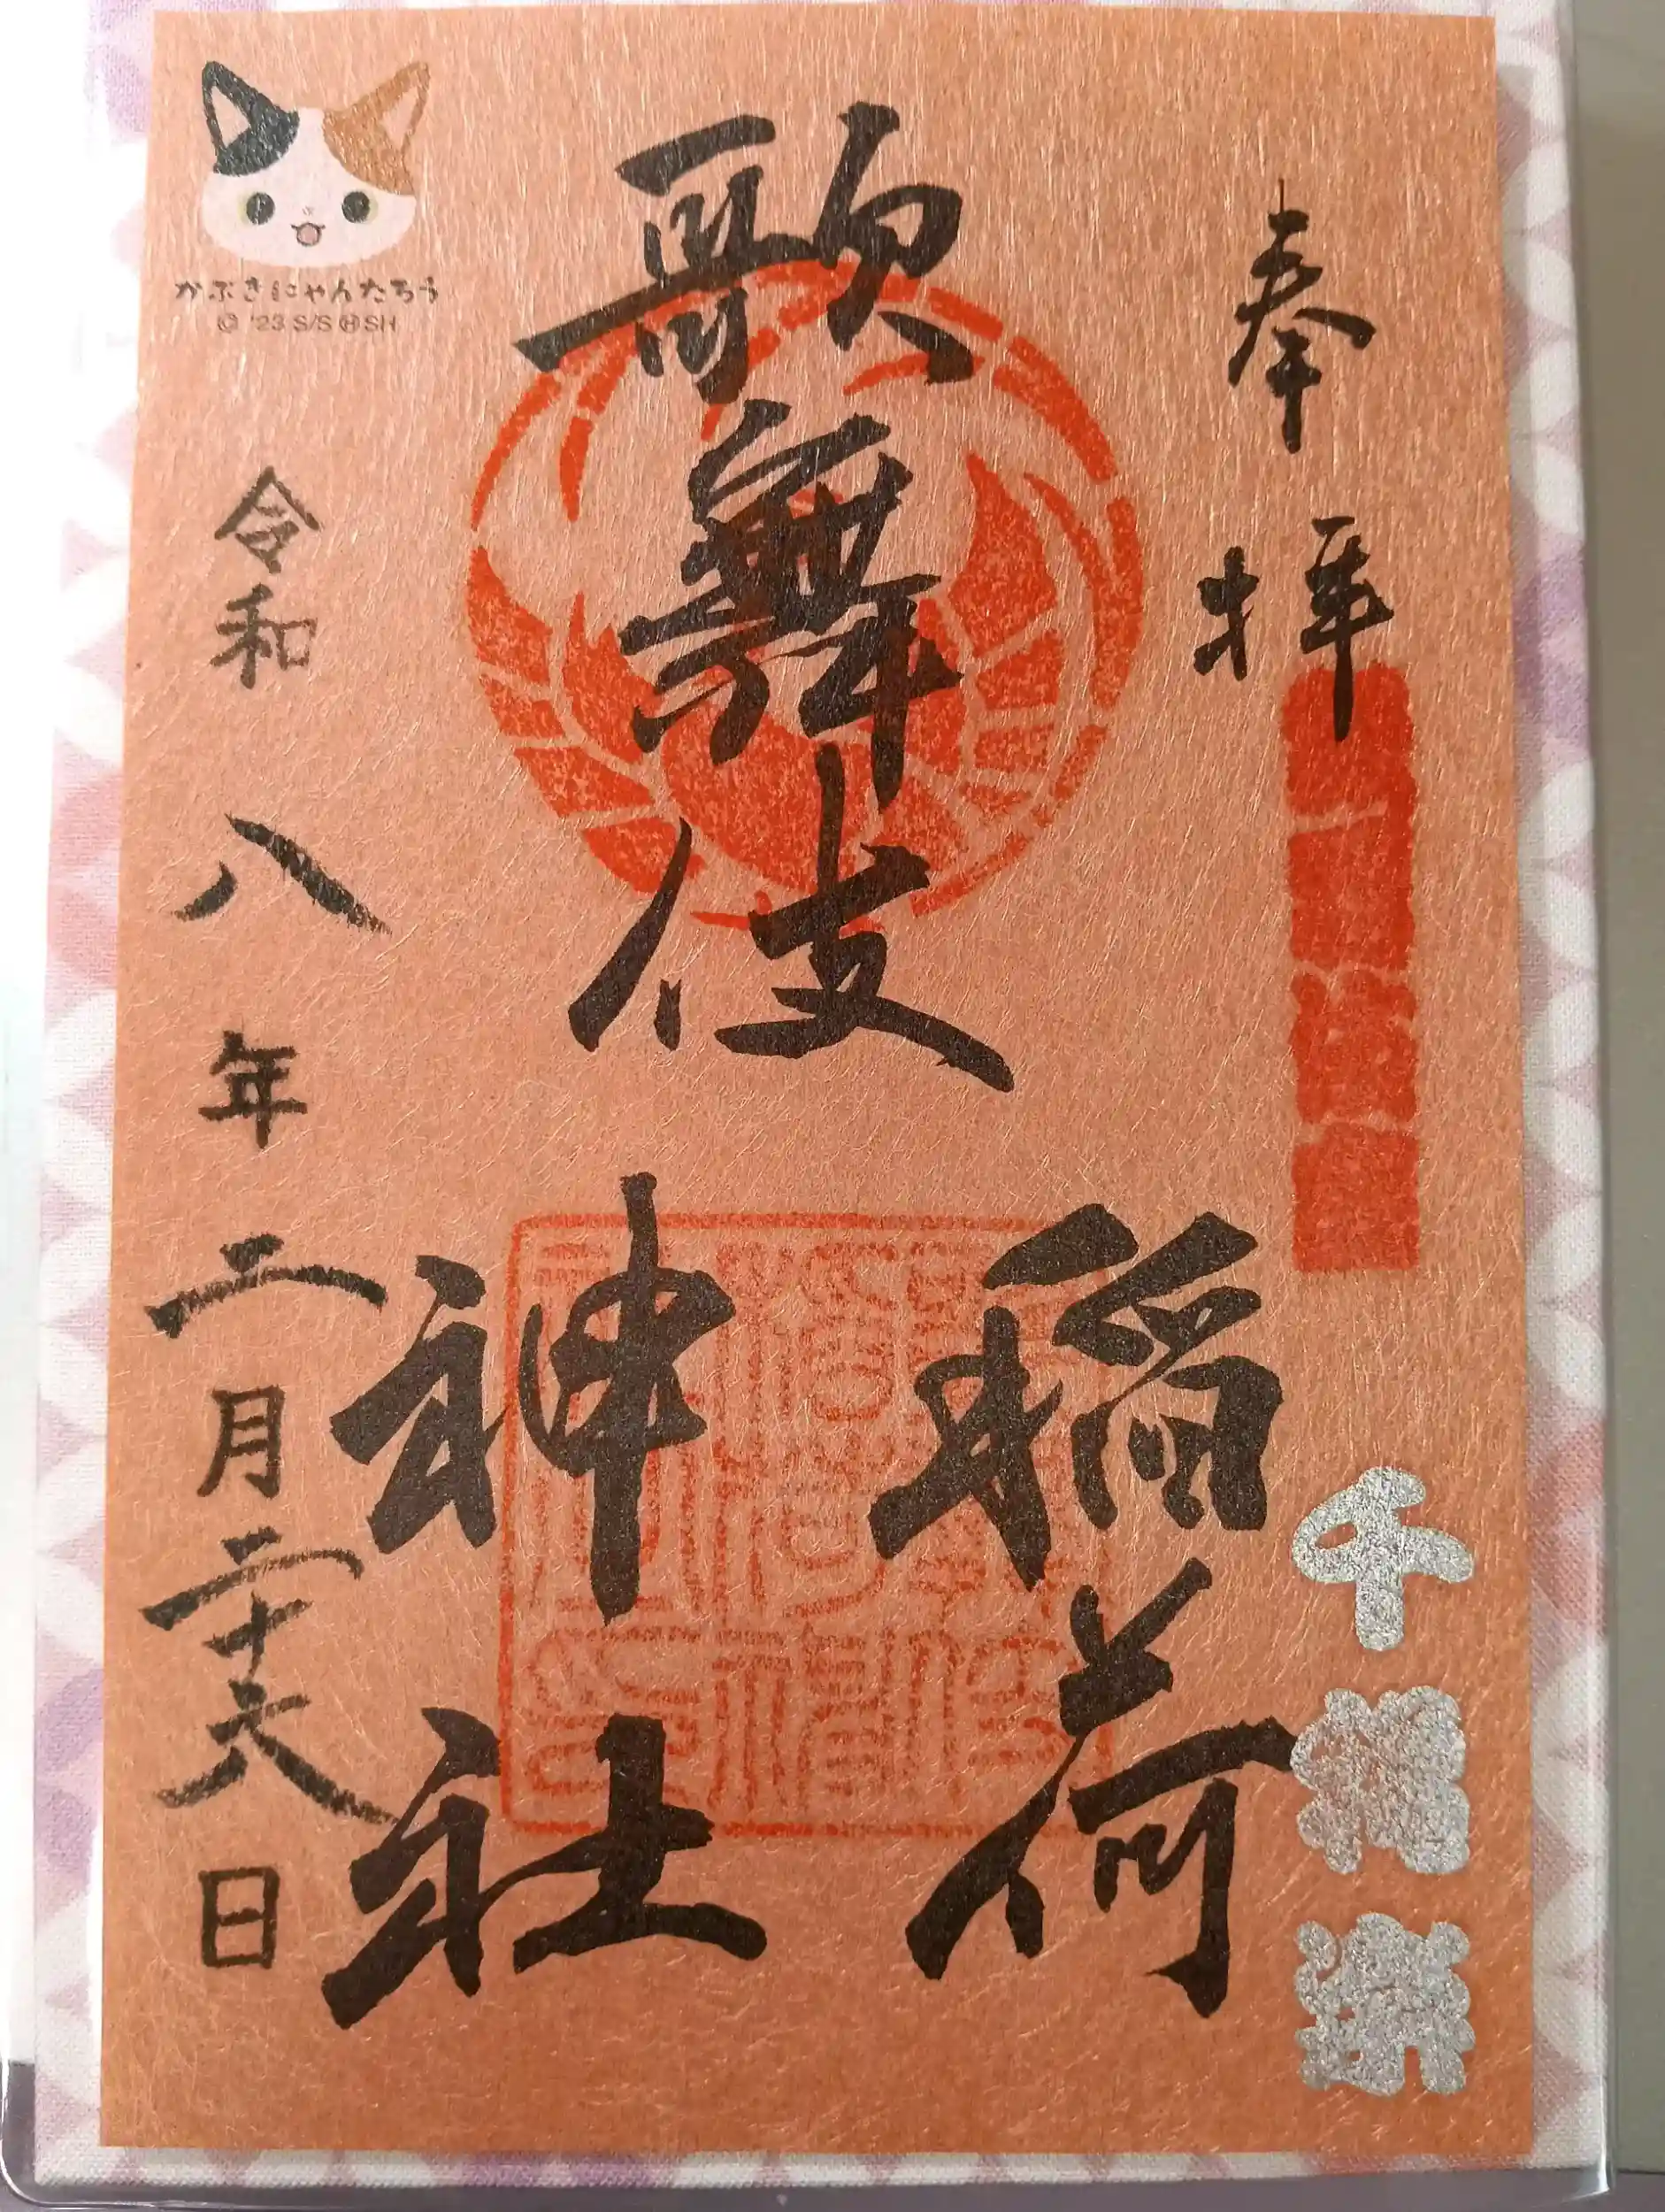 奉拝
千穐楽
歌舞伎
稲荷
神社
かぶきにゃんたろう
© '23 S/S Ⓗ SH
令和八年二月二十六日